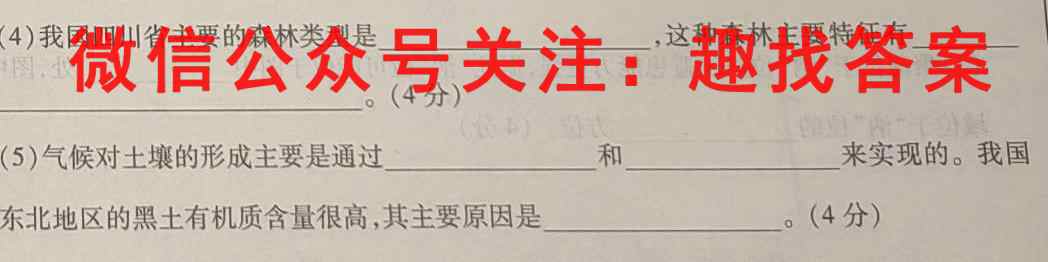 (4)我国四川省主要的森林类型是____________,这种森林主要特征有______
微信公众号关注：趣找答案
____________。(4分)
(5)气候对土壤的形成主要是通过____________和____________来实现的。我国
东北地区的黑土有机质含量很高,其主要原因是____________。(4分)